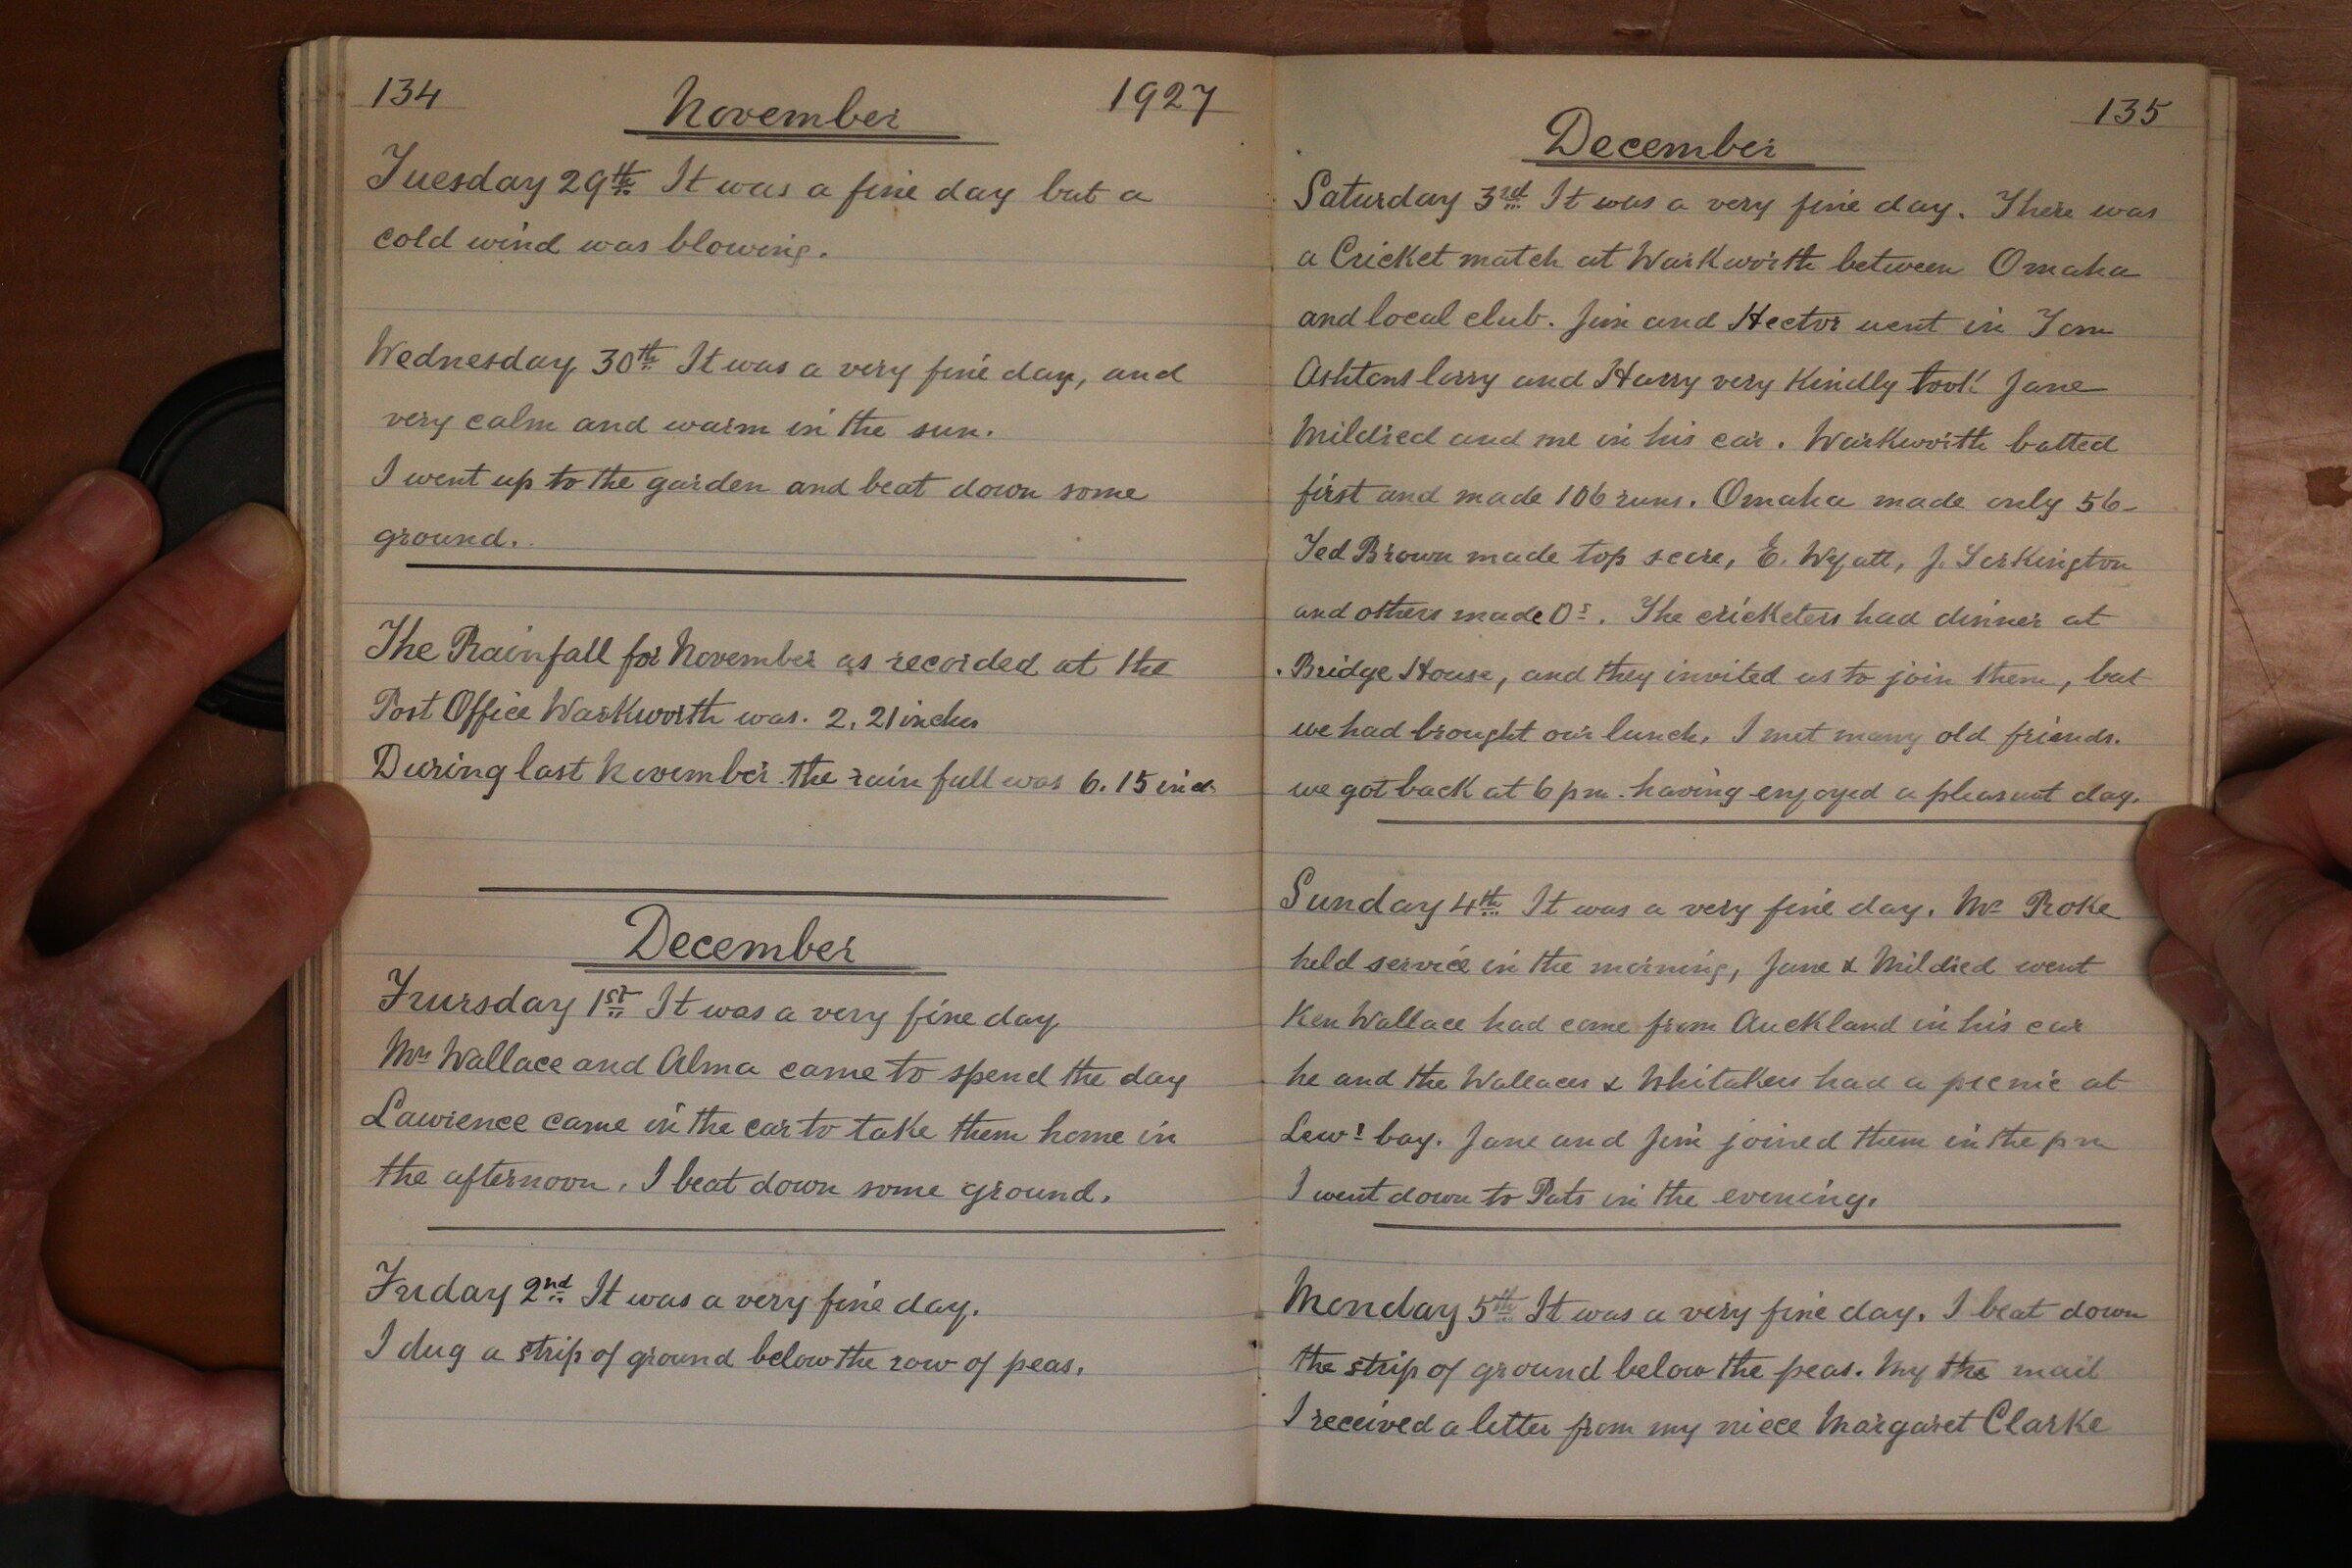 134 November 1927
Tuesday 29th It was a fine day but a
cold wind was blowing.
Wednesday 30th It was a very fine day, and
very calm and warm in the sun.
I went up to the garden and beat down some
ground.
The Rainfall for November as recorded at the
Post Office Warkworth was. 2.21 inches
During last November the rain fall was 6.15 inch
December
Frursday 1st It was a very fine day
Mrs Wallace and Alma came to spend the day
Lawrence came in the car to take them home in
the afternoon. I beat down some ground.
Friday 2nd It was a very fine day.
I dug a strip of ground below the row of peas.
135
December
Saturday 3rd It was a very fine day. There was
a Cricket match at Warkworth between Omaha
and local club. Jim and Hector went in Tom
Ashtons lorry and Harry very kindly took Jane
Mildred and me in his car. Warkworth batted
first and made 106 runs. Omaha made only 56-
Ted Brown made top score, E. Wyatt, J. Torkington
and others made 0s. The cricketers had dinner at
Bridge House, and they invited us to join them, but
we had brought our lunch, I met many old friends.
we got back at 6 pm. having enjoyed a pleasant day.
Sunday 4th It was a very fine day. Mr Roke
held service in the morning, Jane & Mildred went
Ken Wallace had come from Auckland in his car
he and the Wallaces & Whitakers had a picnic at
Lews bay. Jane and Jim joined them in the pm
I went down to Pats in the evening.
Monday 5th It was a very fine day. I beat down
the strip of ground below the peas. My the mail
I received a letter from my niece Margaret Clarke